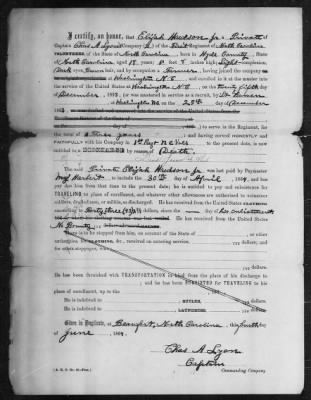 I certify, on honor, that Elijah Hudson Jr a Private
of Captain Chas A. Lyon's Company of the First Regiment of North Carolina
VOLUNTEERS, of the State of North Carolina, born in Hyde County, State
of North Carolina, aged 18 years; 5 feet inches high; Light complexion,
Dark eyes, Brown hair, and by occupation a Farmer, having joined the company
at Washington N C, and enrolled in it at the
into the service of the United States at Washington N C on the twenty fifth day of
December, 1863, and was mustered in as a recruit, by
at Washington N C on the 25th day of December
1863
day of , 18 , to serve in the Regiment, for
the term of Three years; and having served HONESTLY and
FAITHFULLY with his Company in 1st Regt N C Vols to the present date, is now
entitled to a DISCHARGE by reason of Death.
The said Private Elijah Hudson Jr was last paid by Paymaster
Maj Herbert to include the 30th day of April, 1864, and has
pay due him from that time to the present date; he is entitled to pay and subsistence for
TRAVELING to place of enrolment, and whatever other allowances are authorized to volunteer
soldiers, drafted men, or militia, so discharged. He has received from the United States CLOTHING
amounting to Forty three dollars, since the day of
. He has received from the United States
No Bounty
There is to be stopped from him, on account of the State of , or other-
wise, for CLOTHING, &c., received on entering service, dollars; and
for other stoppages, viz:
dollars.
He has been furnished with TRANSPORTATION in kind from the place of his discharge to
; and he has been SUBSISTED for TRAVELING to his
place of enrolment, up to the
He is indebted to , SUTLER, dollars.
He is indebted to , LAUNDRESS, dollars.
Given in Duplicate, at Beaufort, North Carolina, this fourth day of
June, 1864.
Chas A. Lyon
Captain
Commanding Company.